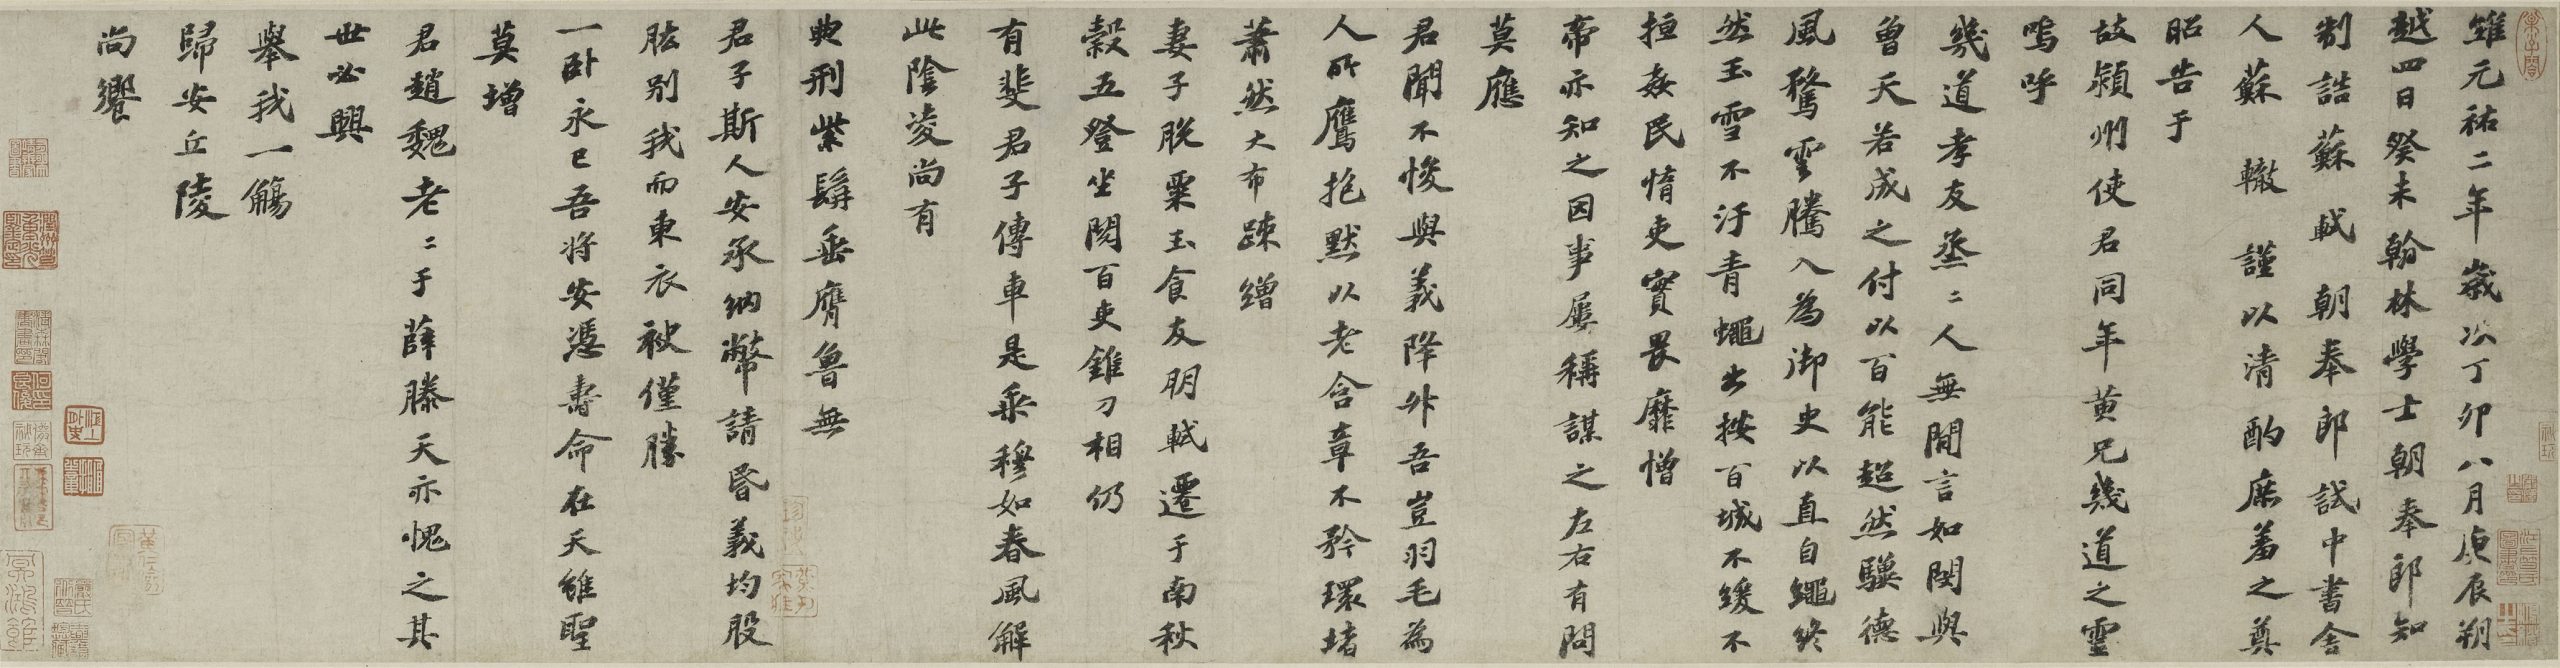 維元祐二年歲次丁卯八月庚辰朔
越四日癸未翰林學士朝奉郎知
制誥蘇軾朝奉郎試中書舍
人蘇轍謹以清酌庶羞之奠
昭告于
故潁州使君同年黃兄幾道之靈
嗚呼
幾道孝友烝〻人無間言如閔與
曾天若成之付以百能超然驥德
風騖雲騰入為御史以直自繩終
然玉雪不汙青蠅出按百城不緩不
揎姦民惰吏實畏靡憎
帝亦知之因事屢稱謀之左右有問
莫應
君聞不悛與義降升吾豈羽毛為
人所鷹抱默以老含章不矜環堵
蕭然大布疎繒
妻子脫粟玉食友朋軾遷于南秋
穀五登坐閱百吏錐刀相仍
有斐君子傳車是乘穆如春風解
此陰凌尚有
典刑紫髯垂膺魯無
君子斯人安承納幣請昏義均股
肱別我而東衣袂僅勝
一臥永已吾將安憑壽命在天雖聖
莫增
君趙魏老〻于薛滕天亦愧之其
世必興
舉我一觴
歸安丘陵
尚饗